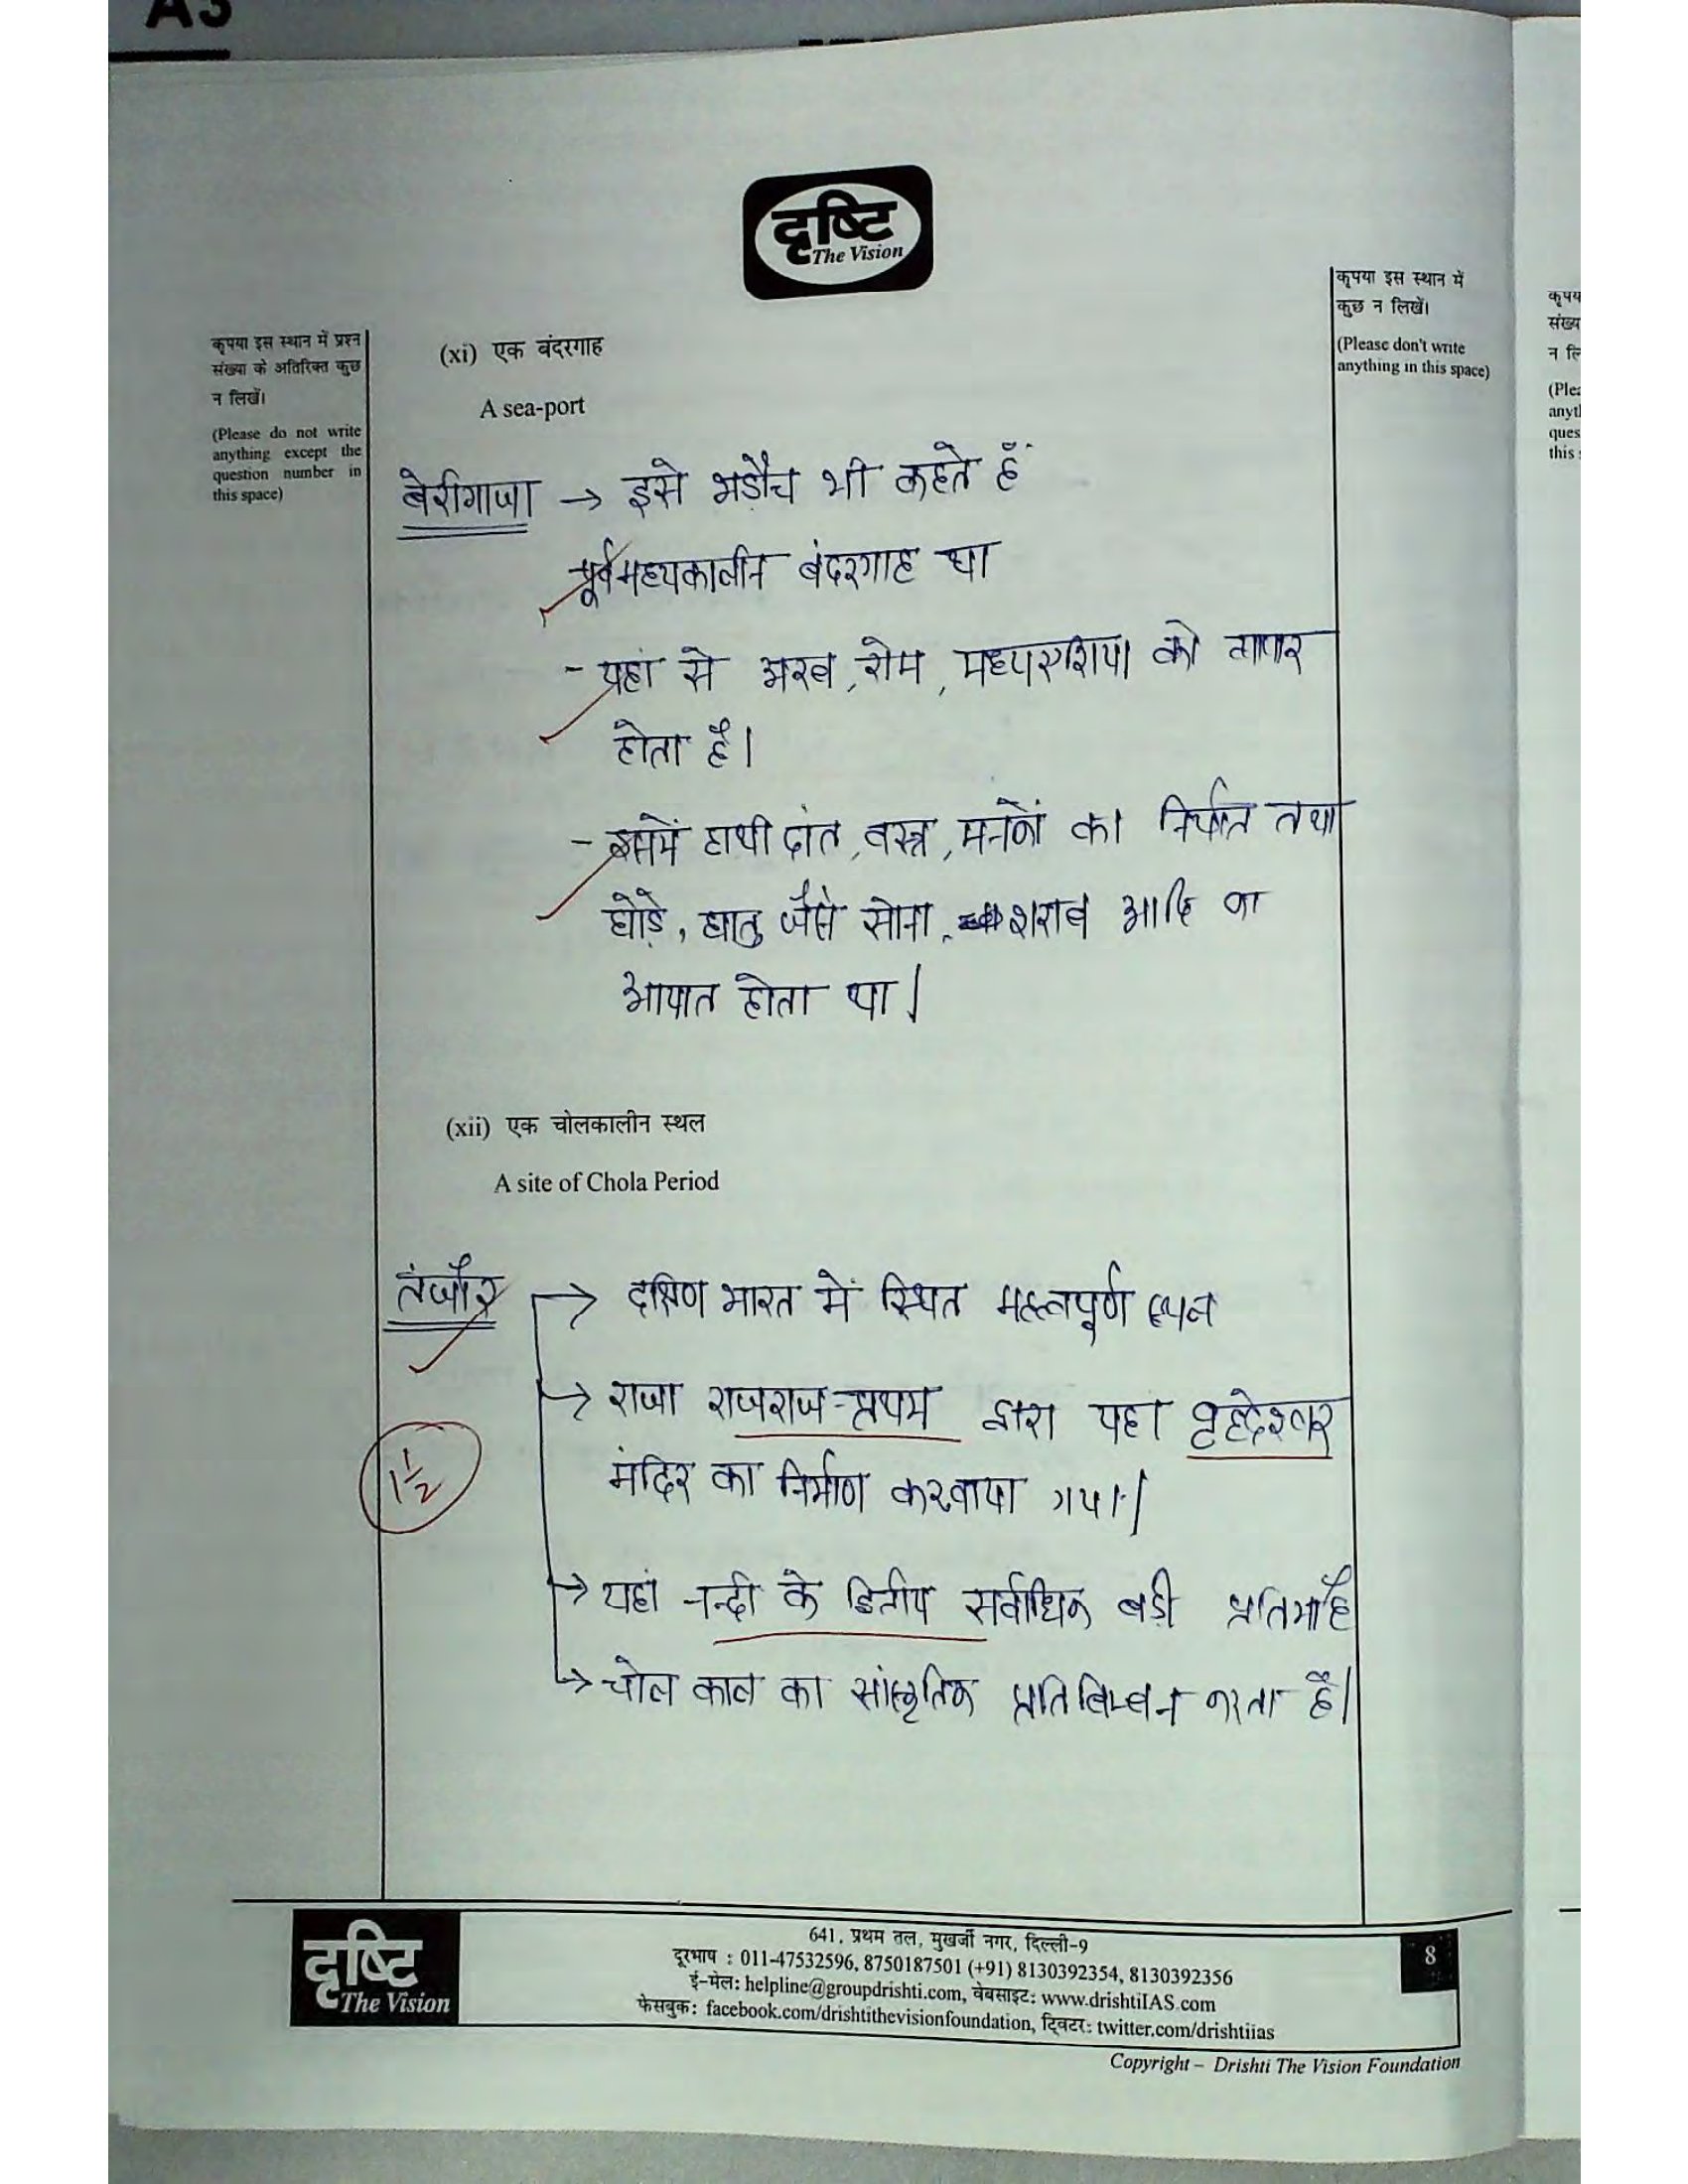 A3
दृष्टि
The Vision
कृपया इस स्थान में
कुछ न लिखें।
(Please don't write
anything in this space)
कृपया इस स्थान में प्रश्न
संख्या के अतिरिक्त कुछ
न लिखें।
(Please do not write
anything except the
question number in
this space)
(xi) एक बंदरगाह
A sea-port
बेरीगाजा → इसे भड़ौच भी कहते हैं
पूर्वमध्यकालीन बंदरगाह था
- यहां से अरब, रोम, मध्यएशिया को व्यापार
होता है।
- इसमें हाथी दांत, वस्त्र, मनकों का निर्यात तथा
घोड़े, धातु जैसे सोना, शराब आदि का
आयात होता था।
(xii) एक चोलकालीन स्थल
A site of Chola Period
तंजौर → दक्षिण भारत में स्थित महत्वपूर्ण स्थल
→ राजा राजराज-प्रथम द्वारा यहां वृहदेश्वर
मंदिर का निर्माण करवाया गया।
1 1/2
→ यहां नन्दी के द्वितीय सर्वाधिक बड़ी प्रतिमा है
→ चोल काल का सांस्कृतिक प्रतिबिम्बन करता है।
दृष्टि
The Vision
641, प्रथम तल, मुखर्जी नगर, दिल्ली-9
दूरभाष : 011-47532596, 8750187501 (+91) 8130392354, 8130392356
ई-मेल: helpline@groupdrishti.com, वेबसाइट: www.drishtiIAS.com
फेसबुक: facebook.com/drishtithevisionfoundation, ट्विटर: twitter.com/drishtiias
8
Copyright – Drishti The Vision Foundation